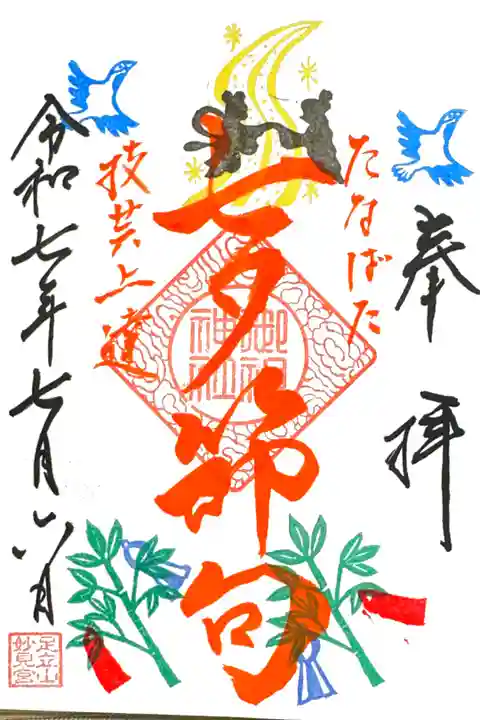 奉拝
たなばた
七夕節句
御祖神社
技芸上達
令和七年七月六日
足立山
妙見宮